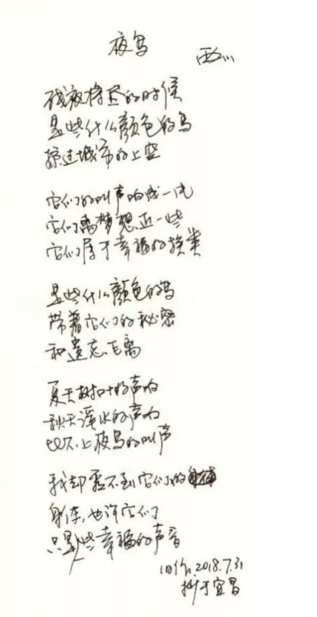 夜鸟
西川
残夜将尽的时候
是些什么颜色的鸟
掠过城市的上空
它们的叫声响成一片
它们离梦想近一些
它们属于幸福的族类
是些什么颜色的鸟
带着它们的秘密
和遗忘飞离
夏天树叶的声响
秋天溪水的声响
比不上夜鸟的叫声
我却看不到它们的
身体，也许它们
只是些幸福的声音
旧作，2018.7.31
抄于宜昌